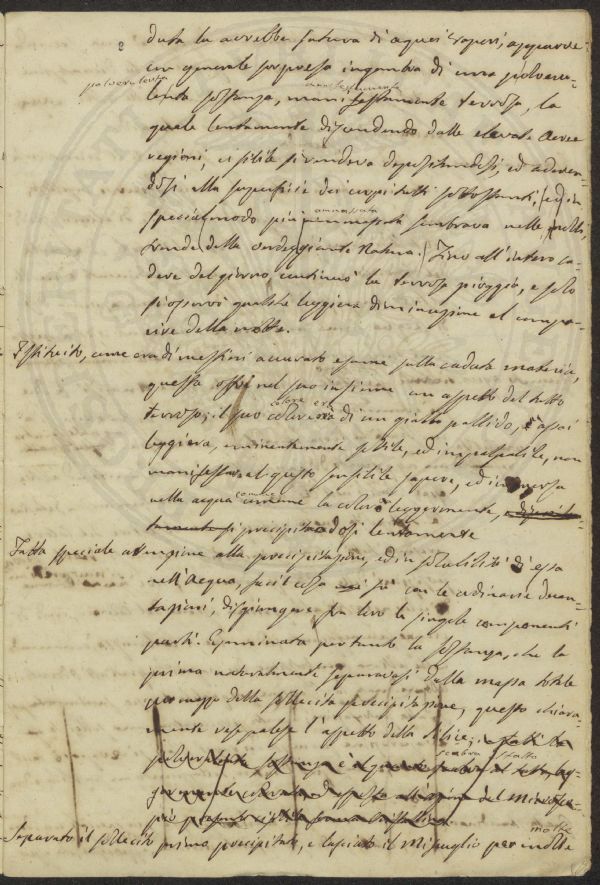 duta la avrebbe satura di aquei Vapori, apparve
in generale sorpresa ingombra di una polveru-
polverulenta manifestamente
lenta sostanza, manifestamente terrosa, la
quale lentamente discendendo dalle elevate Aeree
regioni, visibile si rendeva depositandosi, ed aderen-
dosi alla superficie dei corpi tutti sottostanti, ed in
ammassata
special modo più sembrava nelle
fronde della verdeggiante Natura. Fino all'intero ca-
dere del giorno, continuò la terrosa pioggia, e solo
si osservò qualche leggiera diminuzione al compa-
rire della notte.
Istituito, come era di mestieri accurato esame sulla caduta materia,
questa offrì nel suo insieme un aspetto del tutto
colore era
terroso; il suo colore di un giallo pallido, assai
leggiera, eminentemente sottile, ed impalpabile, non
manifestava al gusto sensibile sapore, ed immersa
comune
nella acqua comune la colorò leggermente,
si precipitandosi lentamente
Fatta speciale attenzione alla precipitazione, ed insolubilità di essa
nell'Acqua, facil cosa fu con le ordinarie decan-
tazioni, disgiungere fra loro le singole componenti
parti. Esaminata pertanto la sostanza, che la
prima naturalmente separavasi dalla massa totale
per mezzo della sollecita precipitazione, questo chiara-
mente rese palese l'aspetto della Silice;
sembra
polverulenta sostanza è
del Microsco-
pio
molte
Separato il sollecito primo precipitato, e lasciato il Miscuglio per molte